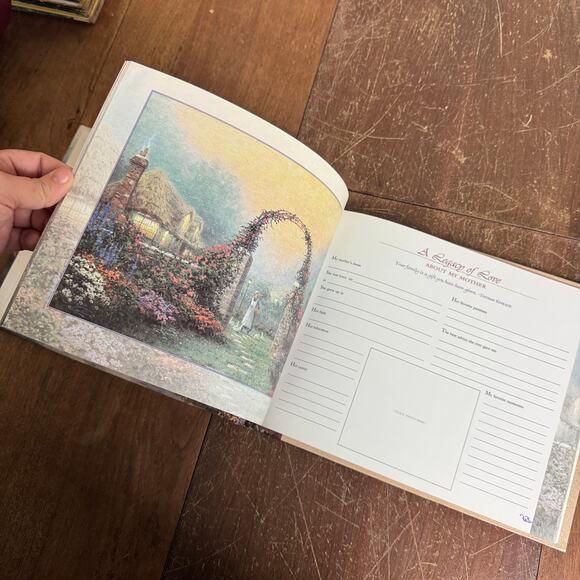 A Legacy of Love
ABOUT MY MOTHER
Your family is a gift you have been given. -Thomas Kinkade
My mother's name
She was born
She grew up in
Her faith
Her education
Her career
Her favorite pastimes
The best advice she ever gave me
My favorite memories